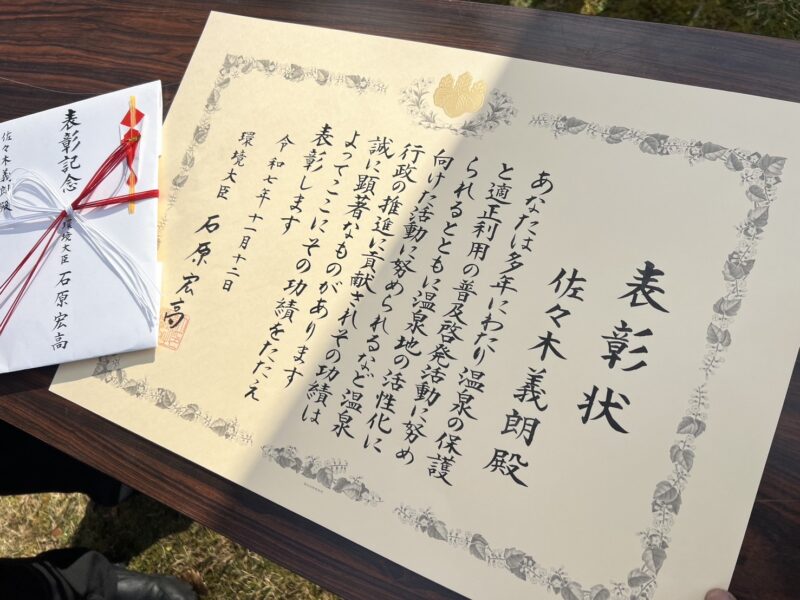 表彰状
佐々木義朗殿
あなたは多年にわたり温泉の保護
と適正利用の普及啓発活動に努め
られるとともに温泉地の活性化に
向けた活動に努められるなど温泉
行政の推進に貢献されその功績は
誠に顕著なものがあります
よってここにその功績をたたえ
表彰します
令和七年十一月十二日
環境大臣 石原宏高
表彰記念
環境大臣 石原宏高
佐々木義朗殿